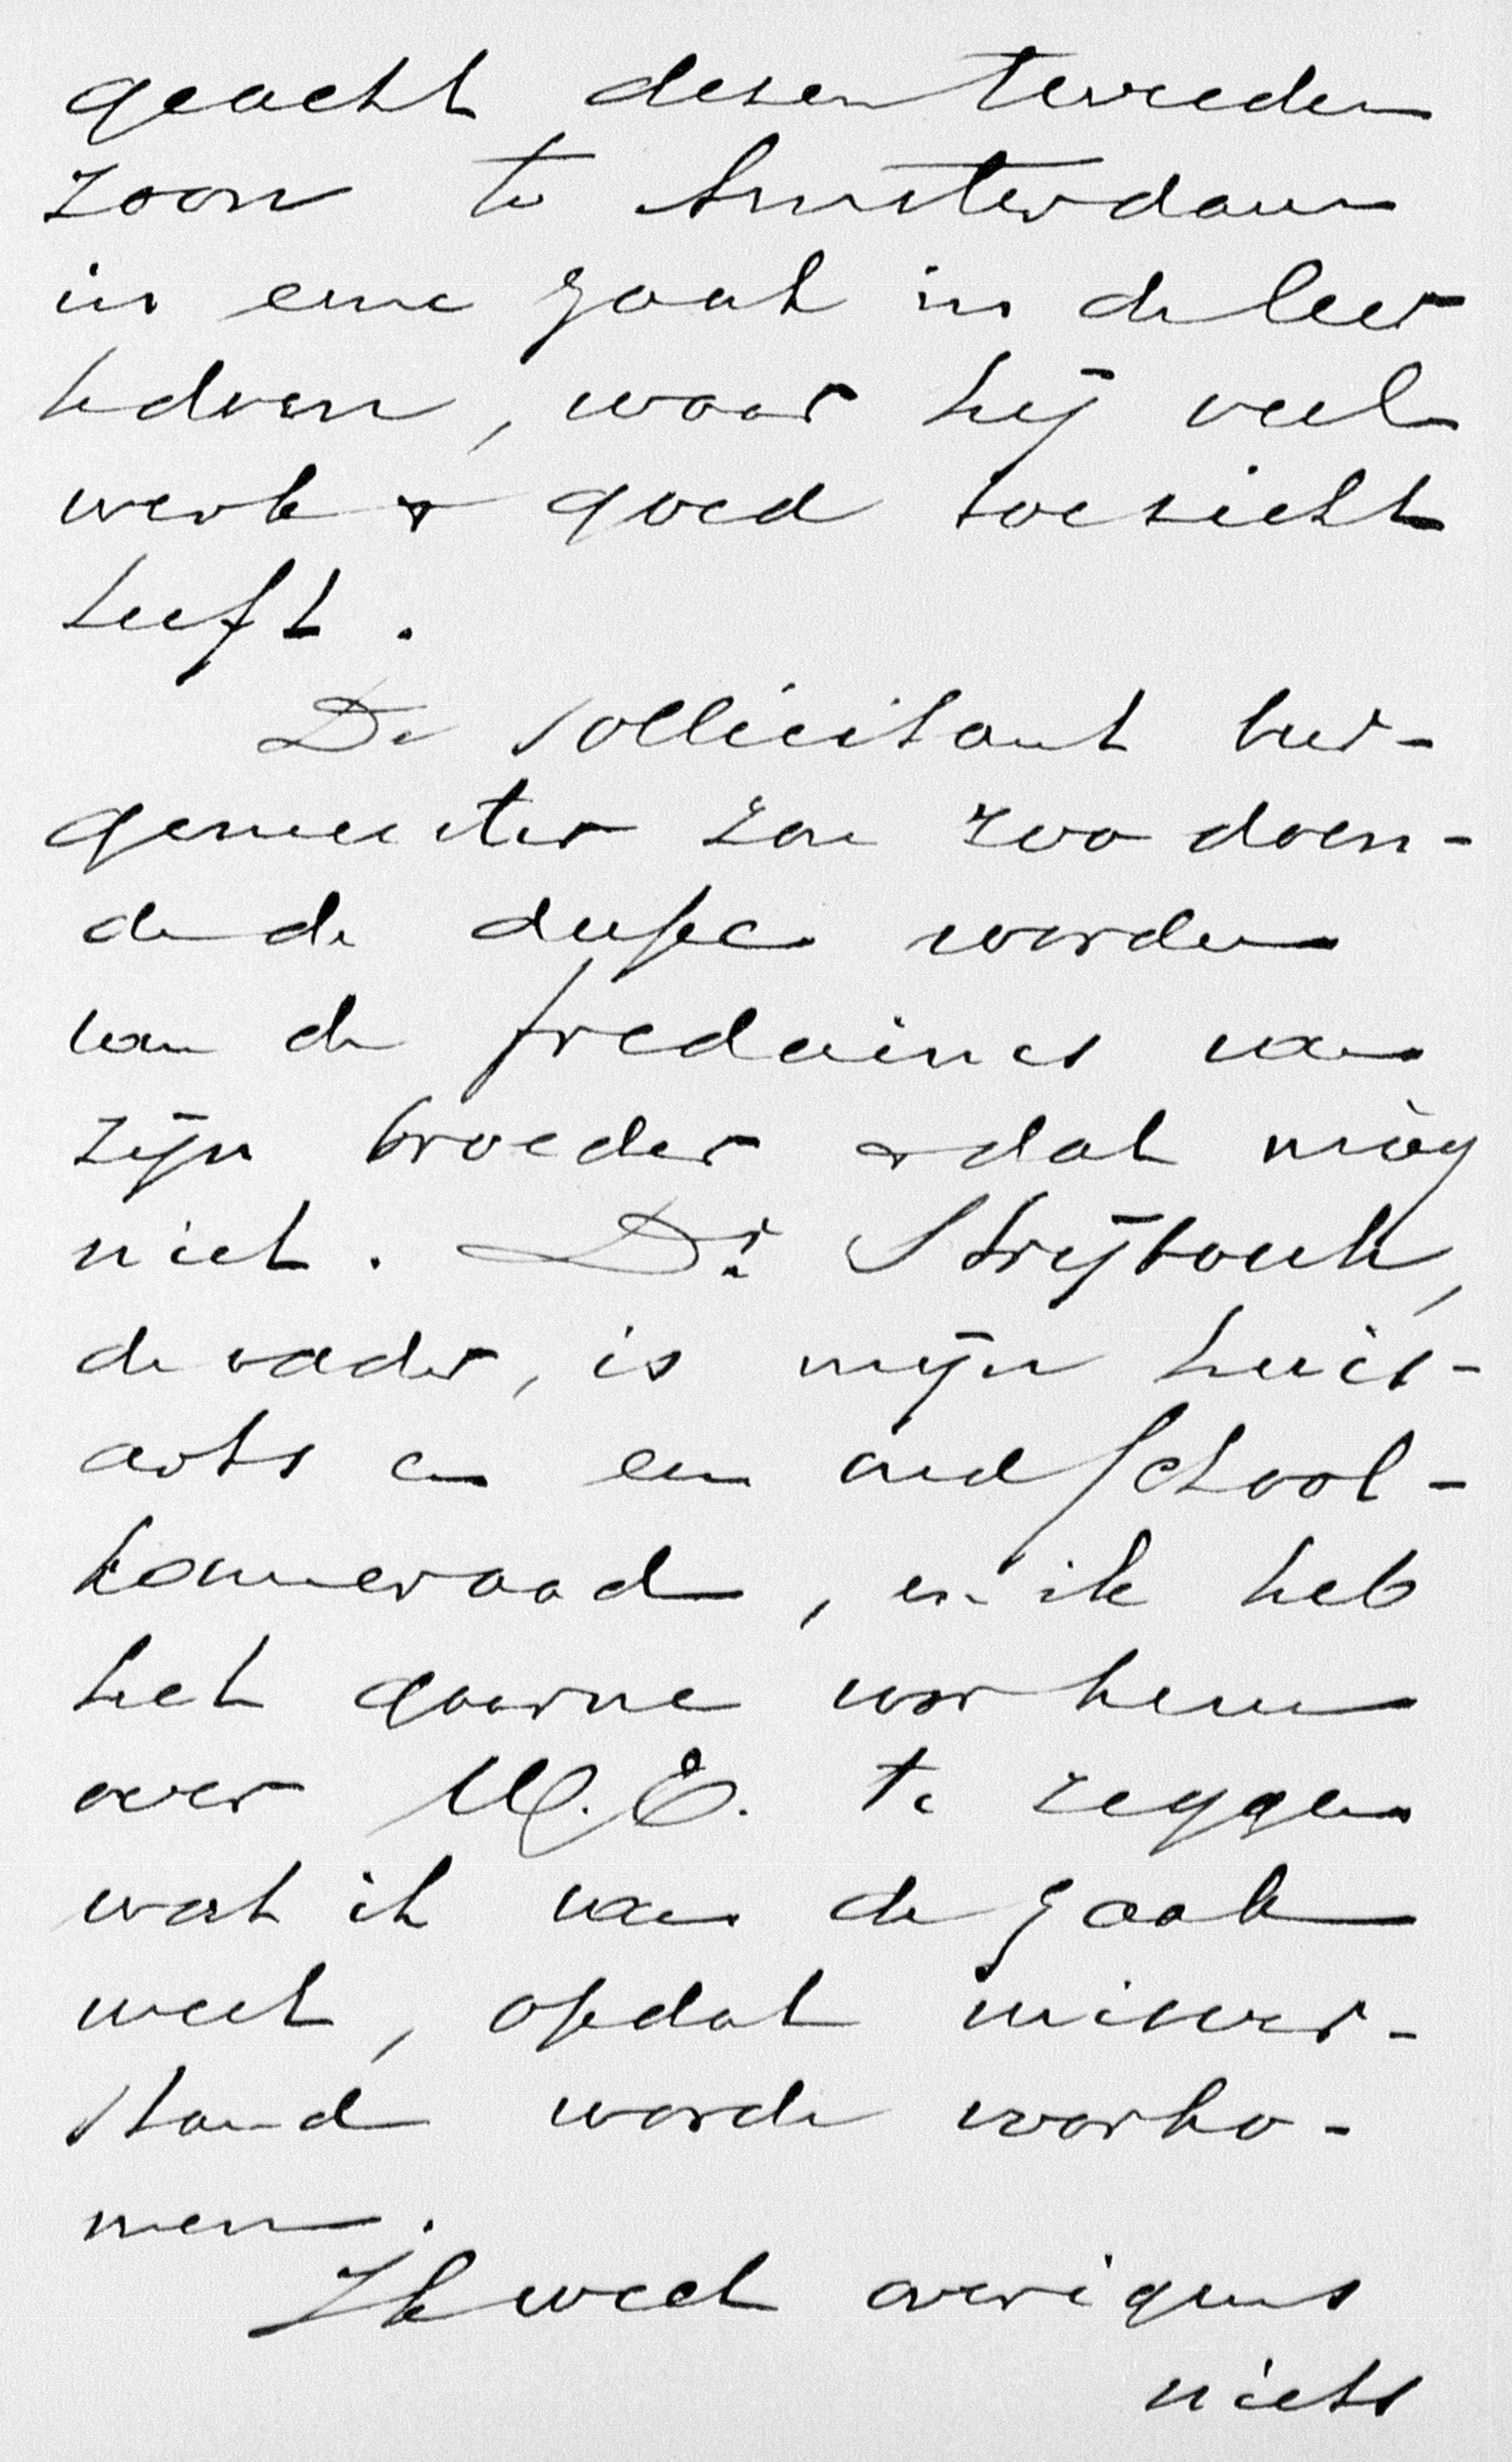 geacht dezen tweeden
zoon te Amsterdam
in eene zaak in de leer
te doen, waar hij veel
werk & goed toezicht
heeft.
De sollicitant bur-
gemeester zou zoo doen-
de de dupe worden
van de fredaines van
zijn broeder & dat mòg
niet. Dr. Strijbonk,
de vader, is mijn huis-
arts en een oud school-
kameraad, en ik heb
het gaarne voor hem
over U.E. te zeggen
wat ik van de zaak
weet, opdat misver-
stand worde voorko-
men.
Ik weet overigens
niets